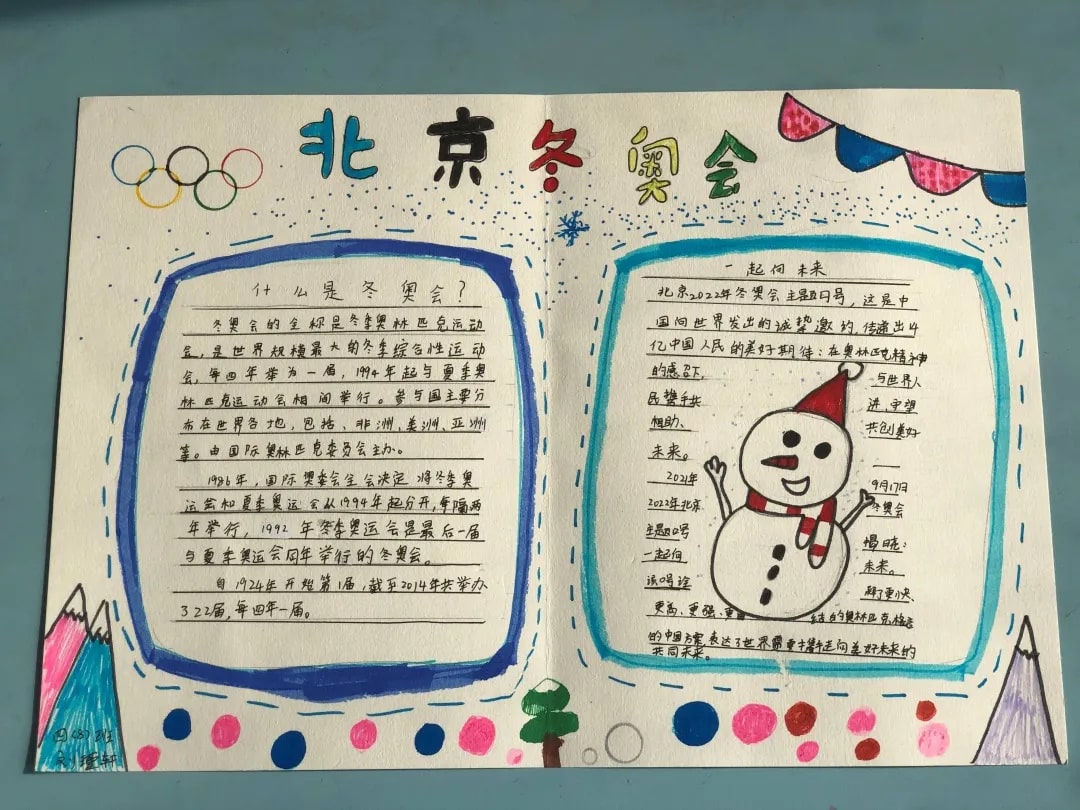 北京冬奥会
什么是冬奥会?
冬奥会的全称是冬季奥林匹克运动
会,是世界规模最大的冬季综合性运动
会,每四年举为一届,1994年起与夏季奥
林匹克运动会相间举行。参与国主要分
布在世界各地,包括、非洲、美洲、亚洲
等。由国际奥林匹克委员会主办。
1986年,国际奥委会全会决定将冬季奥
运会和夏季奥运会从1994年起分开,每隔两
年举行,1992年冬季奥运会是最后一届
与夏季奥运会同年举行的冬奥会。
自1924年开始第1届,截至2014年共举办
322届,每四年一届。
一起向未来
北京2022年冬奥会主题口号,这是中
国向世界发出的诚挚邀约,传递出14
亿中国人民的美好期待:在奥林匹克精神
的感召下, 与世界人
民携手共 进、守望
相助、 共创美好
未来。 一
2021年 9月17日
2022年北京 冬奥会
主题口号 揭晓:
一起向 未来。
该口号 了更快、
更高、更强、更 结的奥林匹克格言
的中国方案,表达了世界需要携手走向美好未来的
共同未来。
四(8)班